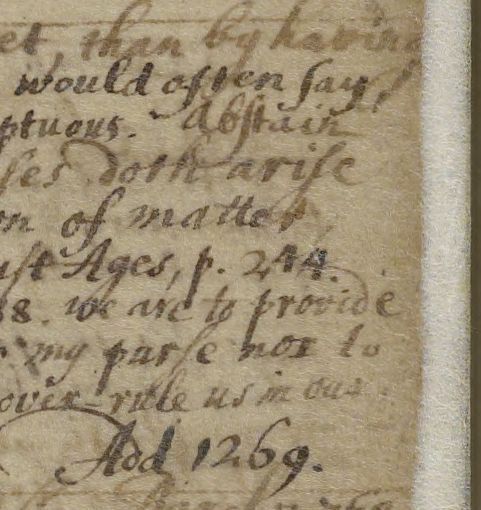 et, than by having
would often say,
ptuous. Abstain
ses doth arise
on of matter,
ust Ages, p. 244.
88. we are to provide
my purse not to
over-rule us in our
Add 1269.